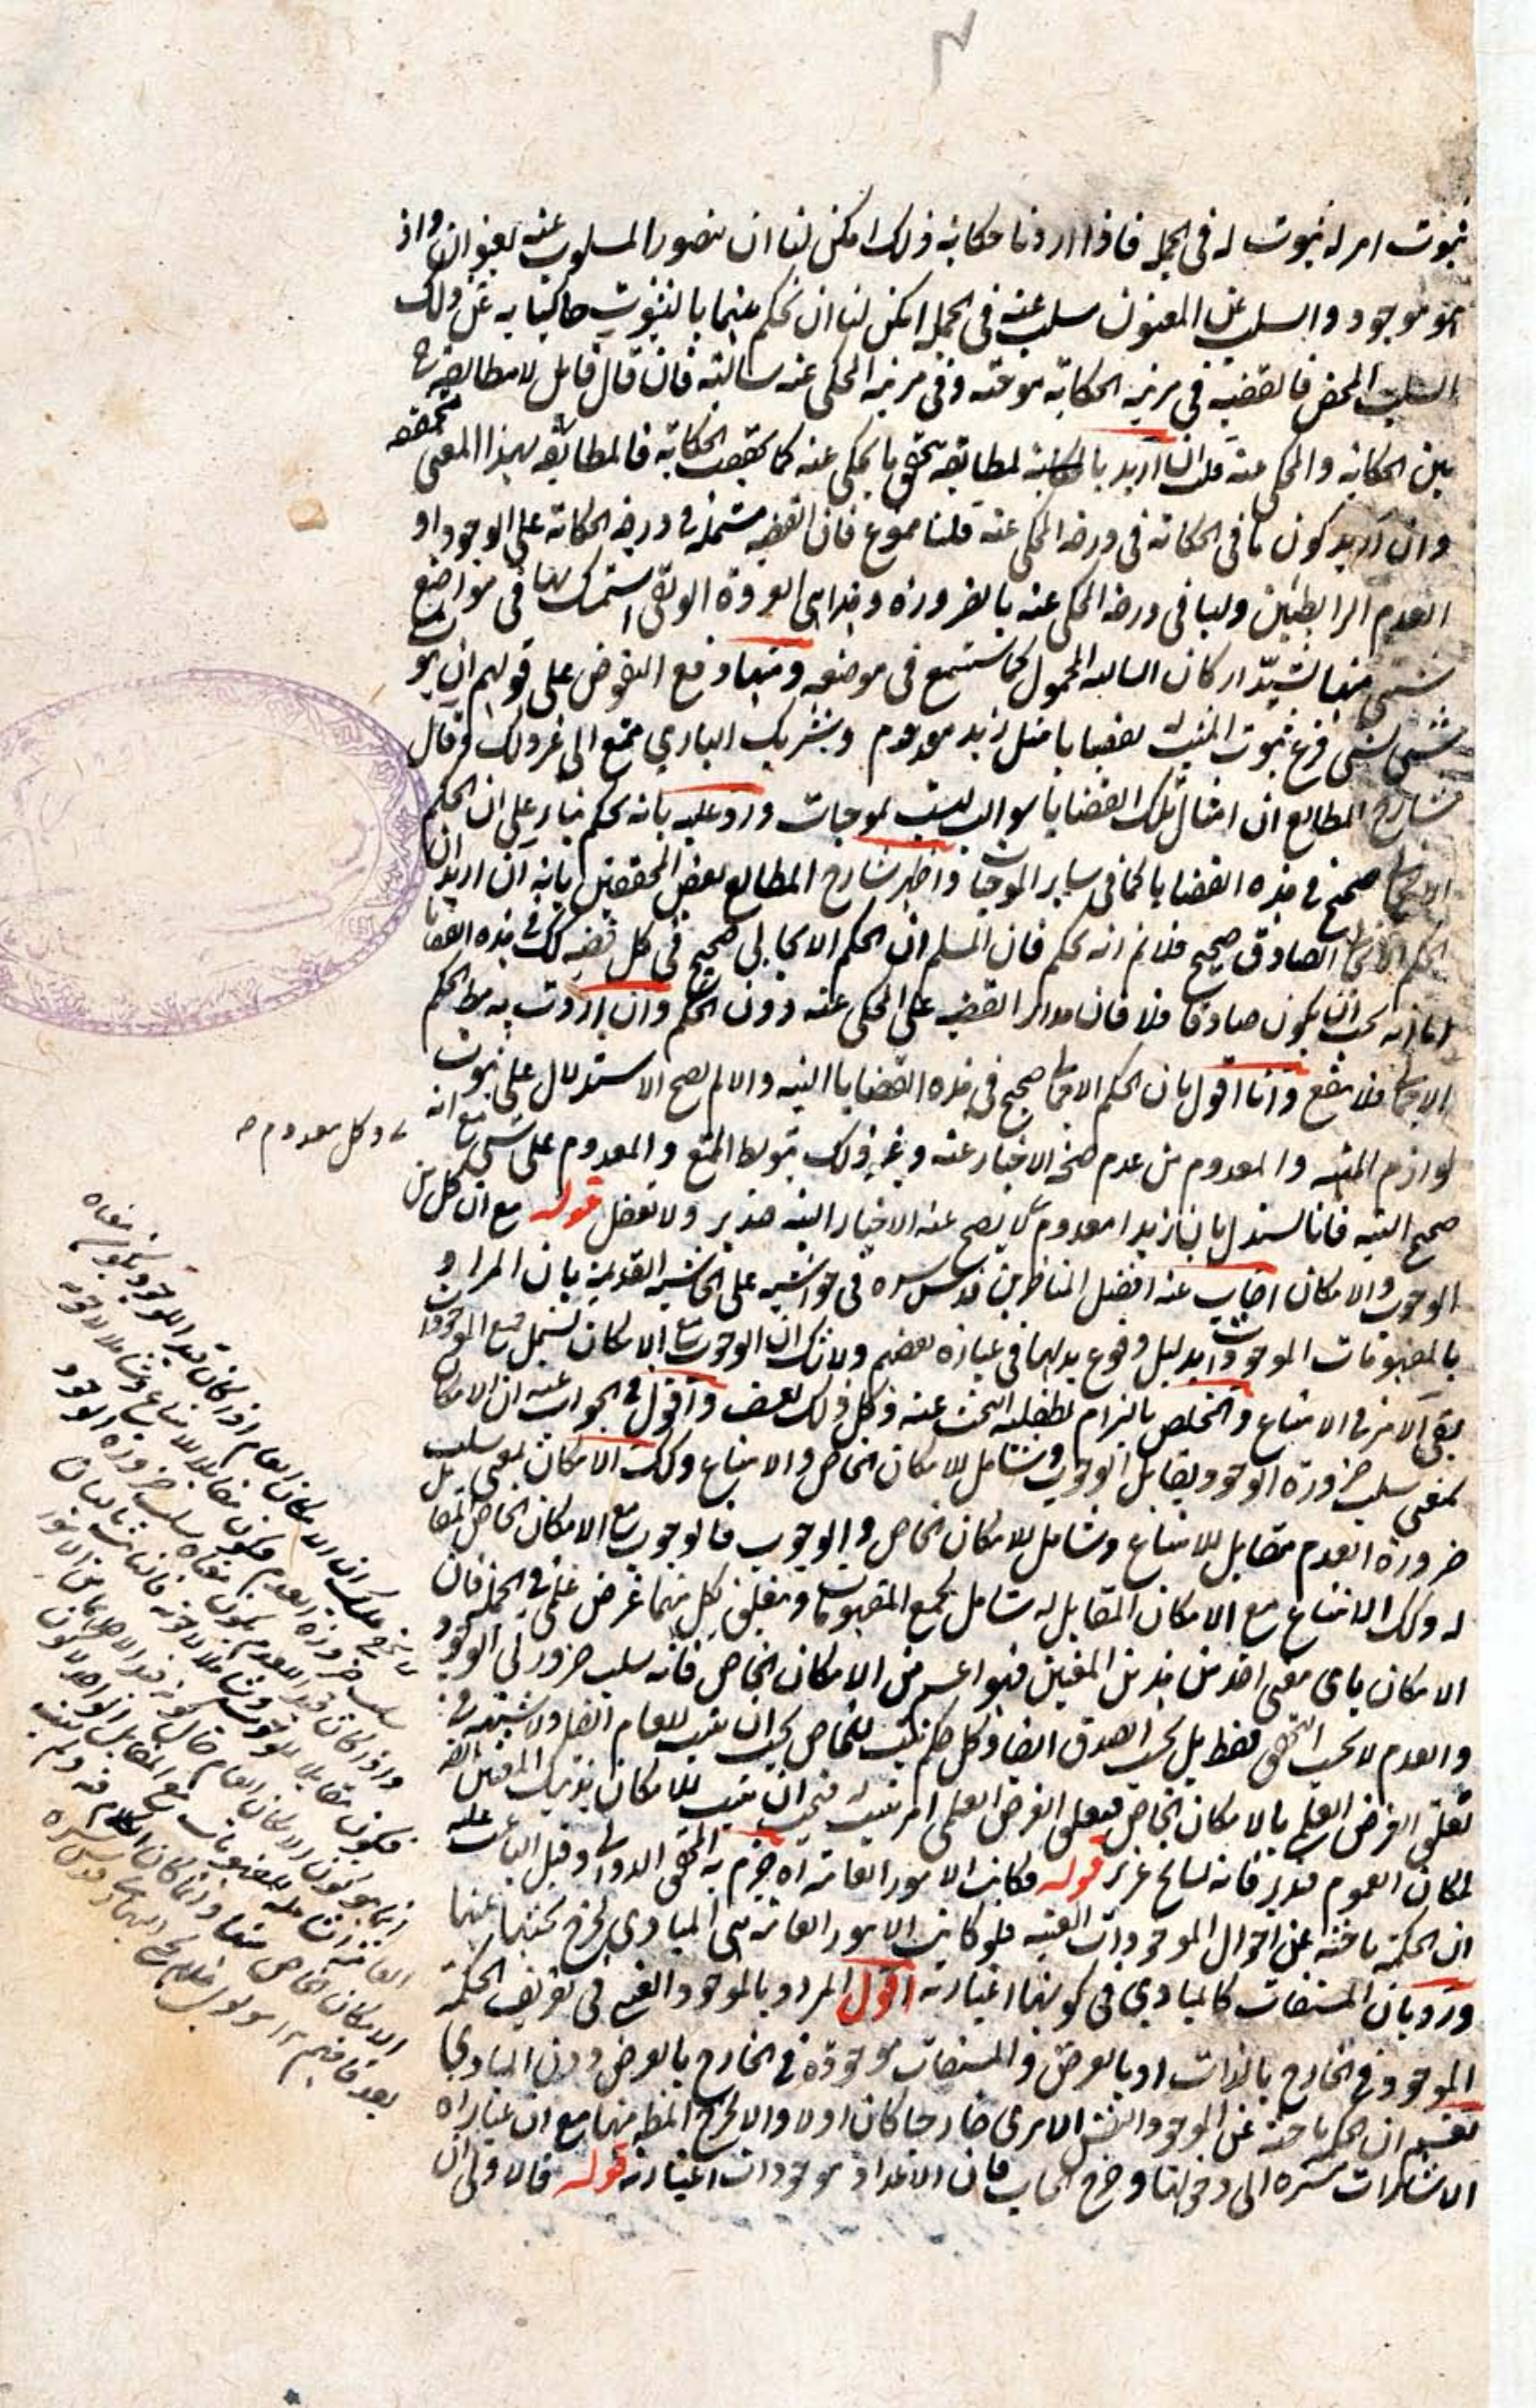 ثبوت امر له ثبوت له فى الجملة فاذا اردنا حكاية ذلك امكن لنا ان نتصور المسلوب عنه بعنوان واذ
هو موجود والسلب عن المعنون سلب عنه فى الجملة امكن لنا ان نحكم عنهما بالثبوت حاكيا به عن ذلك
السلب المحض فالقضية فى مرتبة الحكاية موجبة وفى مرتبة المحكى عنه سالبة فان قال قائل لا مطابقة ح
بين الحكاية والمحكى عنه قلنا ان اريد بالمطابقة تحقق ما يحكى عنه كما يقتضيه الحكاية فالمطابقة بهذا المعنى متحققة
وان اريد كون ما فى الحكاية فى درجة المحكى عنه قلنا ممنوع فان القضية مشتملة فى درجة الحكاية على الوجود او
العدم الرابطيين وليسا فى درجة المحكى عنه بالضرورة وهذا هى العروة الوثقى استمسك بها فى مواضع
شتى منها تشييد اركان السالبة المحمول كما ستسمع فى موضعه ومنها دفع النقوض على قولهم ان ثبوت
شئ لشئ فرع ثبوت المثبت له بقضايا مثل زيد معدوم وشريك البارى ممتنع الى غير ذلك وقال
شارح المطالع ان امثال تلك القضايا سوالب ليست بموجبات ورد عليه بانه تحكم بناء على ان الحكم
الايجابى صحيح فى هذه القضايا كما فى سائر الموجبات واظهر شارح المطالع بعض المحققين بانه ان اريد ان
الحكم الايجابى الصادق صحيح فلانم انه تحكم فان المسلم ان الحكم الايجابى صحيح فى كل قضية كك فى هذه القضايا
اما انه يجب ان يكون صادقا فلا فان مدار القضية على المحكى عنه دون الحكم وان اردت به مط الحكم
الايجابى فلا ينفع وانا اقول بان الحكم الايجابى صحيح فى هذه القضايا البتة والا لم يصح الاستدلال على ثبوت
لوازم الممتنع والمعدوم من عدم صحة الاخبار عنه وغير ذلك بتوسط الممتنع والمعدوم على شئ مع انه
صحيح البتة فانا نستدل بان زيدا معدوم لا يصح عنه الاخبار البتة فتدبر ولا تغفل قوله مع ان كل من
وكل معدوم
الوجوب والامكان اجاب عنه افضل المناظرين قدس سره فى حواشيه على الحاشية القديمة بان المراد
بالمفهومات الموجودات بدليل وقوع بدلها فى عبارة بعضهم ولا شك ان الوجوب مع الامكان يشمل جميع الموجودات
بقى الامر فى الامتناع والتخلص بالتزام تطفلية البحث عنه وكل ذلك تعسف واقول فى الجواب عنه ان الامكان
بمعنى سلب ضرورة الوجود يقابل الوجوب وشامل للامكان الخاص والامتناع وكك الامكان بمعنى سلب
ضرورة العدم مقابل للامتناع وشامل للامكان الخاص والوجوب فالوجوب مع الامكان الخاص المقابل
له وكك الامتناع مع الامكان المقابل له شامل لجميع المفهومات وتعلق بكل منهما غرض علمى فى الجملة فان
الامكان باى معنى اخذ من هذين المعنيين فهو اعم من الامكان الخاص فانه سلب ضرورتى الوجود
والعدم لا بحسب التحقق فقط بل بحسب الصدق ايضا وكل حكم يثبت للخاص يجب ان يثبت للعام ايضا ولا شبهة فى
تعلق الغرض العلمى بالامكان الخاص فتعلق الغرض العلمى امر يثبت له فيجب ان يثبت للامكان بذينك المعنيين ايضا
لمكان العموم فتدبر فانه سانح عزيز قوله فكانت الامور العامة اه جزم به المحقق الدوانى وقيل الباعث عليه
ان الحكمة باحثة عن احوال الموجودات العينية فلو كانت الامور العامة هى المبادى يخرج بحثها عنها
ورد بان المشتقات كالمبادى فى كونها اعتبارية اقول المراد بالموجود العينى فى تعريف الحكمة
الموجود فى الخارج بالذات او بالعرض والمشتقات موجودة فى الخارج بالعرض دون المبادى
نعم ان الحكمة باحثة عن الموجود النفس الامرى خارجا كان اولا والا لخرج المنطق منها مع ان عبارة
الاشارات مشيرة الى دخولها وخرج الحساب فان الاعداد موجودات اعتبارية قوله فالاولى ان
لا يخفى عليك ان الامكان العام اذا كان قيدا للوجود يكون معناه
سلب ضرورة العدم فيكون مقابلا للامتناع وشاملا لاخويه
واذا كان قيدا للعدم يكون معناه سلب ضرورة الوجود
فيكون مقابلا للوجوب وشاملا لاخويه